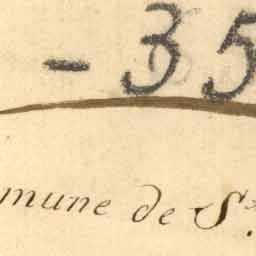 - 35
mune de St.